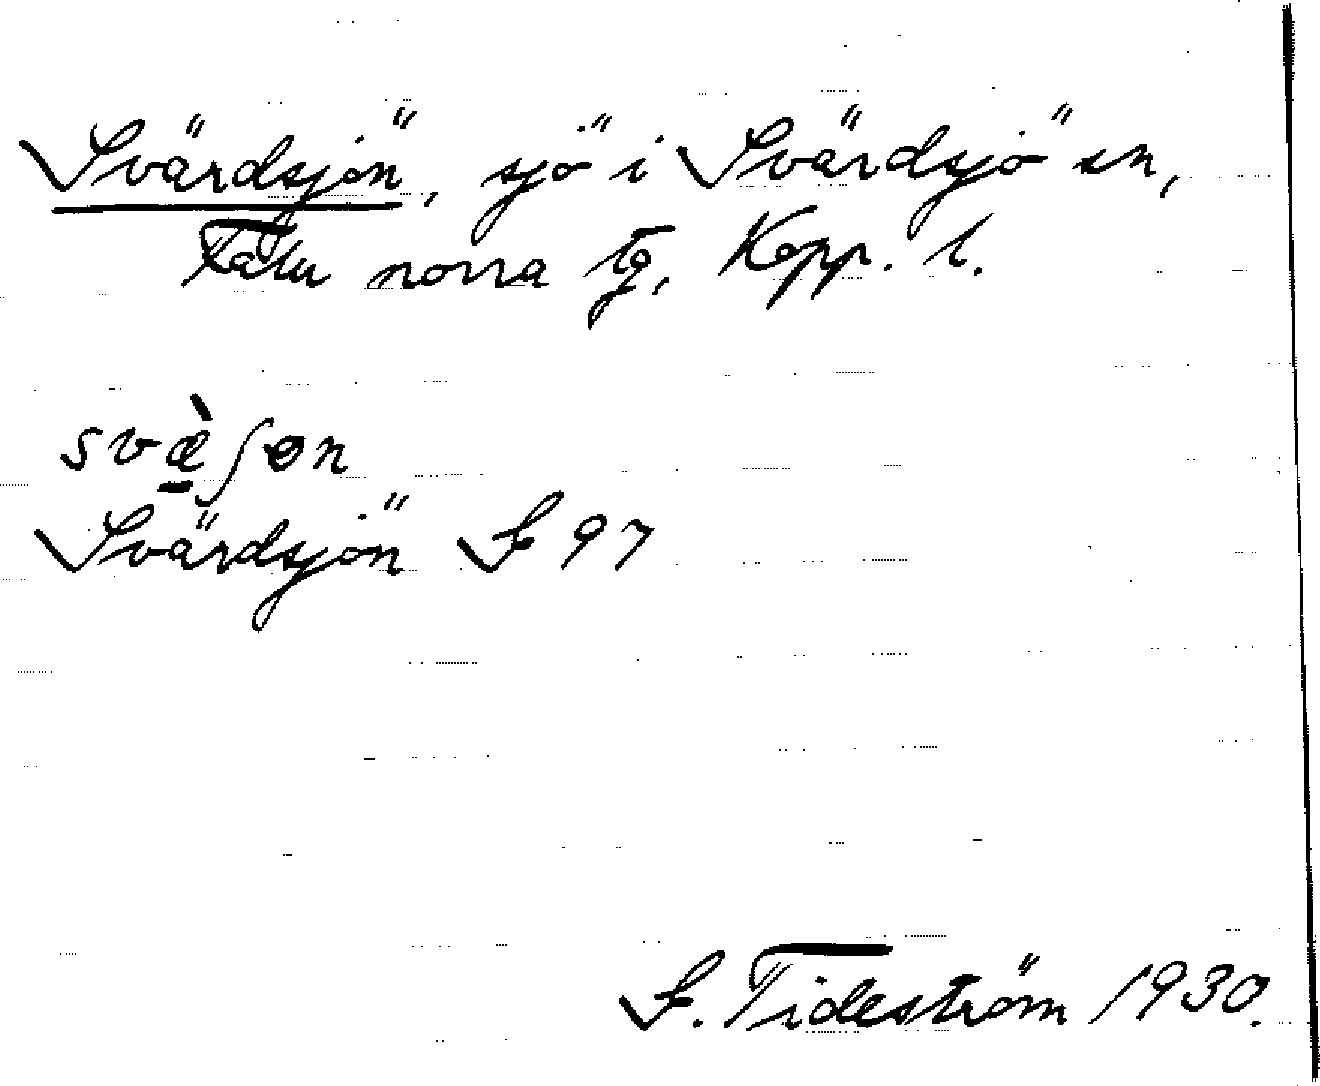 Svärdsjön, sjö i Svärdsjö sn,
Falu norra tg, Kopp. l.
svæ̀ʃɵn
Svärdsjön S 97
S. Tideström 1930.